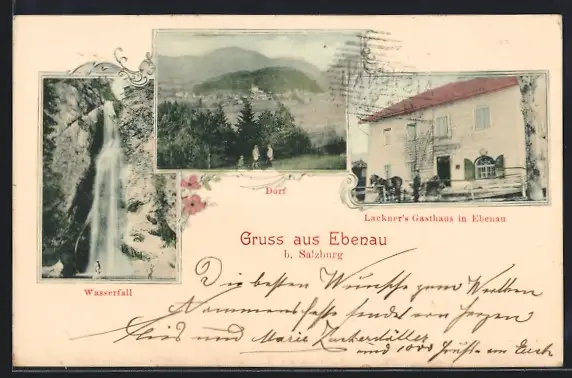 Wasserfall
Dorf
Lackner's Gasthaus in Ebenau
Gruss aus Ebenau
b. Salzburg
Die besten Wünsche zum Werthen
Nammensfeste sendet von Herzen
und Marie Zuckerstätter
und 1000 Grüße an Euch